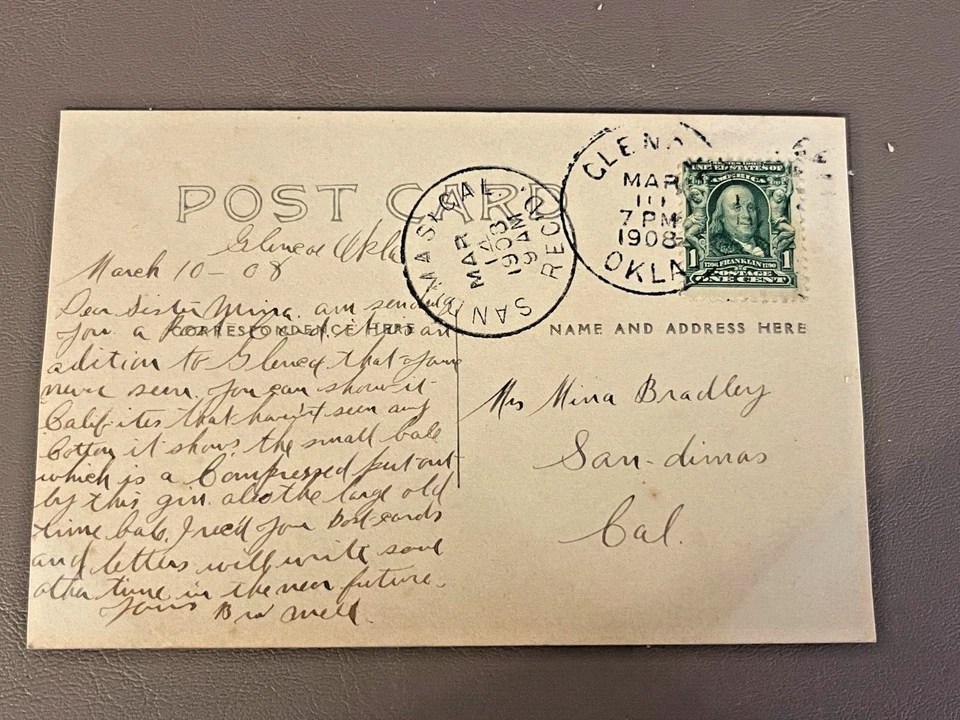 POST CARD
Glencoe Okla
March 10 - 08
Dear Sister Mina. am sending
you a Post Card, it is an
adition to Glencoe that you
never seen. you can show it
Calif-ites that haint seen any
Cotton it shows the small bale
which is a Compressed put out
by this gin. also the large old
time bale. I rec'd your Post cards
and letters will write some
other time in the near future.
yours Bro Will.
CORRESPONDENCE HERE
SAN CAL.
MAR
14
1908
9 AM
REC'D.
GLEN
MAR
10
7 PM
1908
OKLA
UNITED STATES OF
AMERICA
1 1
1706 FRANKLIN 1790
POSTAGE
ONE CENT
NAME AND ADDRESS HERE
Mrs Mina Bradley
San-dimas
Cal.